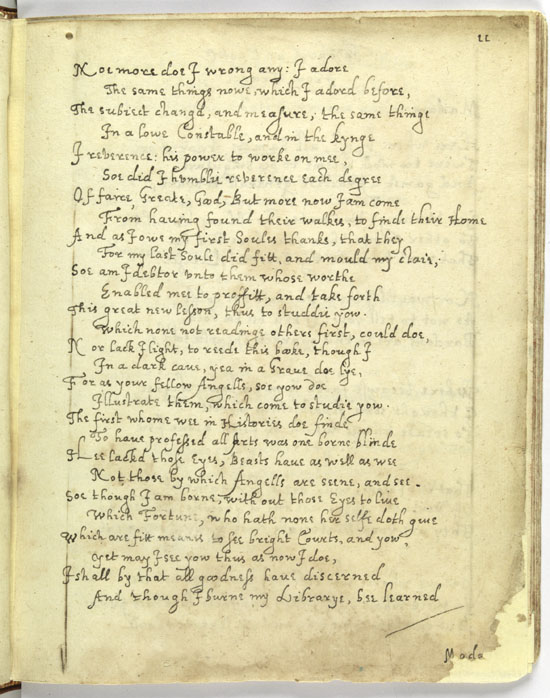 22
Noe more doe I wrong any: I adore
The same things nowe, which I adord before,
The subiect changd, and measure; the same thinge
In a lowe Constable, and in the kynge
I reverence: his power to worke on mee,
Soe did I humblie reverence each degree
Of faire, Greate, Good, But more now I am come
From having found their walkes, to finde their Home
And as I owe my first Soules thanks, that they
For my last Soule did fitt, and mould my claie;
Soe am I debtor unto them whose worthe
Enabled mee to proffitt, and take forth
This great new lesson, thus to studdie yow.
Which none not readinge others first, could doe,
Nor lack I light, to reede this booke, though I
In a dark cave, yea in a Grave doe lye,
For as your fellow Angells, soe yow doe
Illustrate them, which come to studie yow.
The first whome wee in Histories doe finde
To have professed all Arts was one borne blinde
Hee lackd those Eyes, Beasts have as well as wee
Not those by which Angells are seene, and see.
Soe though I am borne, without those Eyes to live
Which Fortune, who hath none her selfe doth give
Which are fitt meanes to see bright Courts, and yow,
yet may I see yow thus as now I doe,
I shall by that all goodness have discerned
And though I burne my Librarye, bee learned
Mada